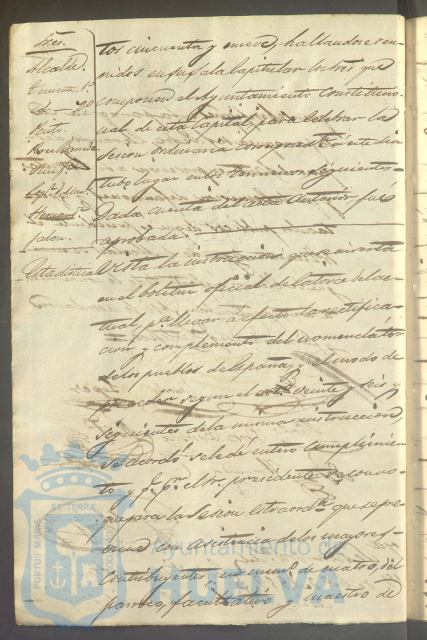 Sres.
Alcalde.
Teniente 1º
Id. 2º
Hernand.
Jalon.
tos cincuenta y nueve, hallandose reu-
nidos en su Sala Capitular los Sres. que
componen el Ayuntamiento Constitucio-
nal de esta Capital para celebrar la
sesion ordinaria correspte. á este dia
tubo lugar en los terminos siguientes.
Dada cuenta del acta anterior fue
aprobada.
Estadistica
Vista la instruccion que se inserta
en el boletin oficial de catorce del ac-
tual, pa. llevar a efecto la rectifica-
cion y complemento del nomenclator
de los pueblos de España, y el modo de
proceder segun el art. veinte y seis y
siguientes de la misma instruccion,
se acordó se le dé entero cumplimien-
to y qe. pr. el Sr. presidente se convo-
que para la sesion estraorda. que se pre-
viene con asistencia de los mayores
contribuyentes, en numo. de cuatro, del
parroco, facultativo y maestro de
PORTUS MARIS
ET TERRAE
Ayuntamiento de
HUELVA